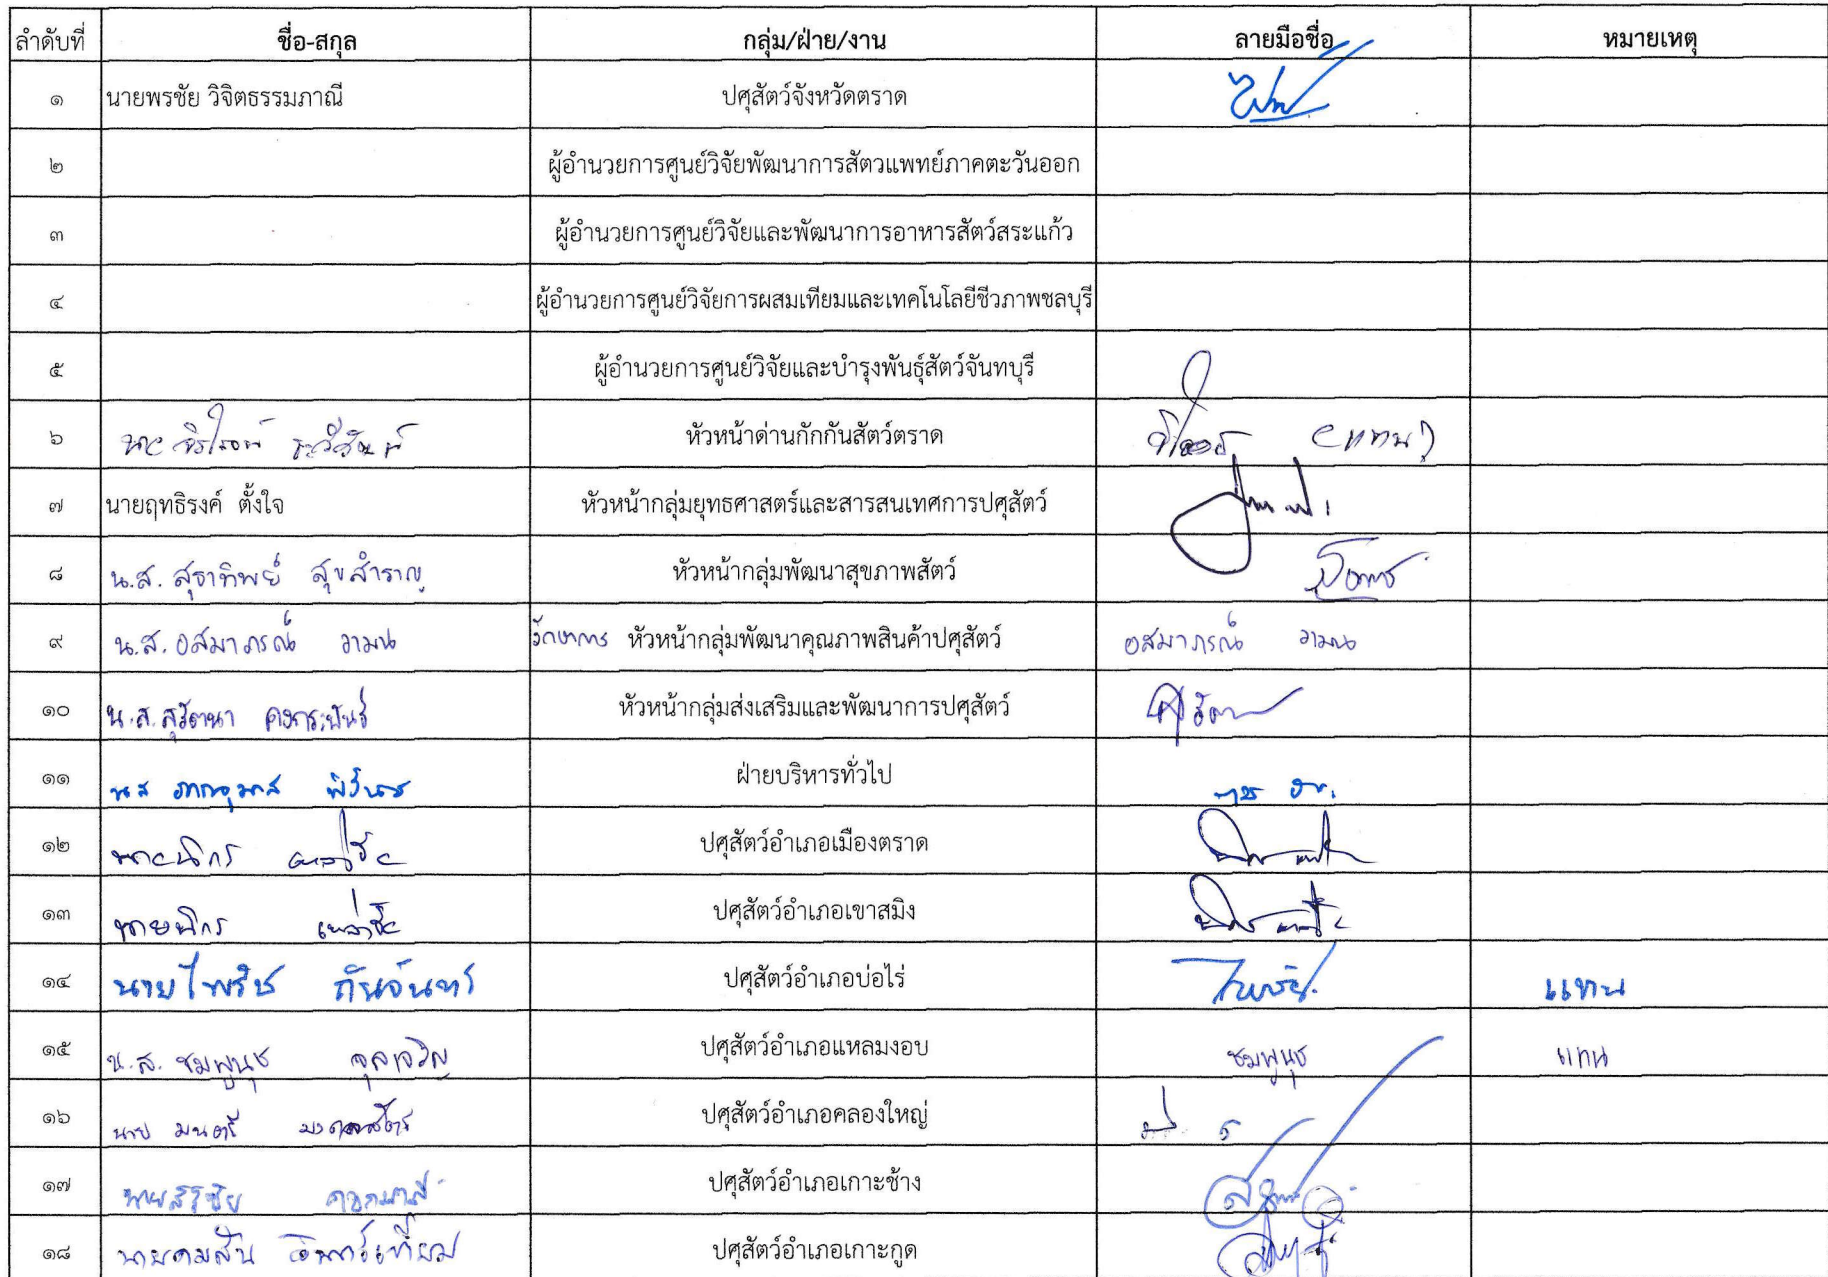 ลำดับที่ ชื่อ-สกุล กลุ่ม/ฝ่าย/งาน ลายมือชื่อ หมายเหตุ
๑ นายพรชัย วิจิตธรรมภาณี ปศุสัตว์จังหวัดตราด
๒ ผู้อำนวยการศูนย์วิจัยพัฒนาการสัตวแพทย์ภาคตะวันออก
๓ ผู้อำนวยการศูนย์วิจัยและพัฒนาการอาหารสัตว์สระแก้ว
๔ ผู้อำนวยการศูนย์วิจัยการผสมเทียมและเทคโนโลยีชีวภาพชลบุรี
๕ ผู้อำนวยการศูนย์วิจัยและบำรุงพันธุ์สัตว์จันทบุรี
๖ หัวหน้าด่านกักกันสัตว์ตราด (แทน)
๗ นายฤทธิรงค์ ตั้งใจ หัวหน้ากลุ่มยุทธศาสตร์และสารสนเทศการปศุสัตว์
๘ น.ส. สุธาทิพย์ สุขสำราญ หัวหน้ากลุ่มพัฒนาสุขภาพสัตว์
๙ น.ส. อสมาภรณ์ วามน รักษาการ หัวหน้ากลุ่มพัฒนาคุณภาพสินค้าปศุสัตว์ อสมาภรณ์ วามน
๑๐ น.ส. สุรัตนา หัวหน้ากลุ่มส่งเสริมและพัฒนาการปศุสัตว์
๑๑ น.ส ฝ่ายบริหารทั่วไป
๑๒ ปศุสัตว์อำเภอเมืองตราด
๑๓ ปศุสัตว์อำเภอเขาสมิง
๑๔ นายไพรัช กันจันทร์ ปศุสัตว์อำเภอบ่อไร่ แทน
๑๕ น.ส. ชมพูนุช จุลเจริญ ปศุสัตว์อำเภอแหลมงอบ ชมพูนุช แทน
๑๖ นาย มนตรี ปศุสัตว์อำเภอคลองใหญ่
๑๗ ปศุสัตว์อำเภอเกาะช้าง
๑๘ นายคมสัน ปศุสัตว์อำเภอเกาะกูด